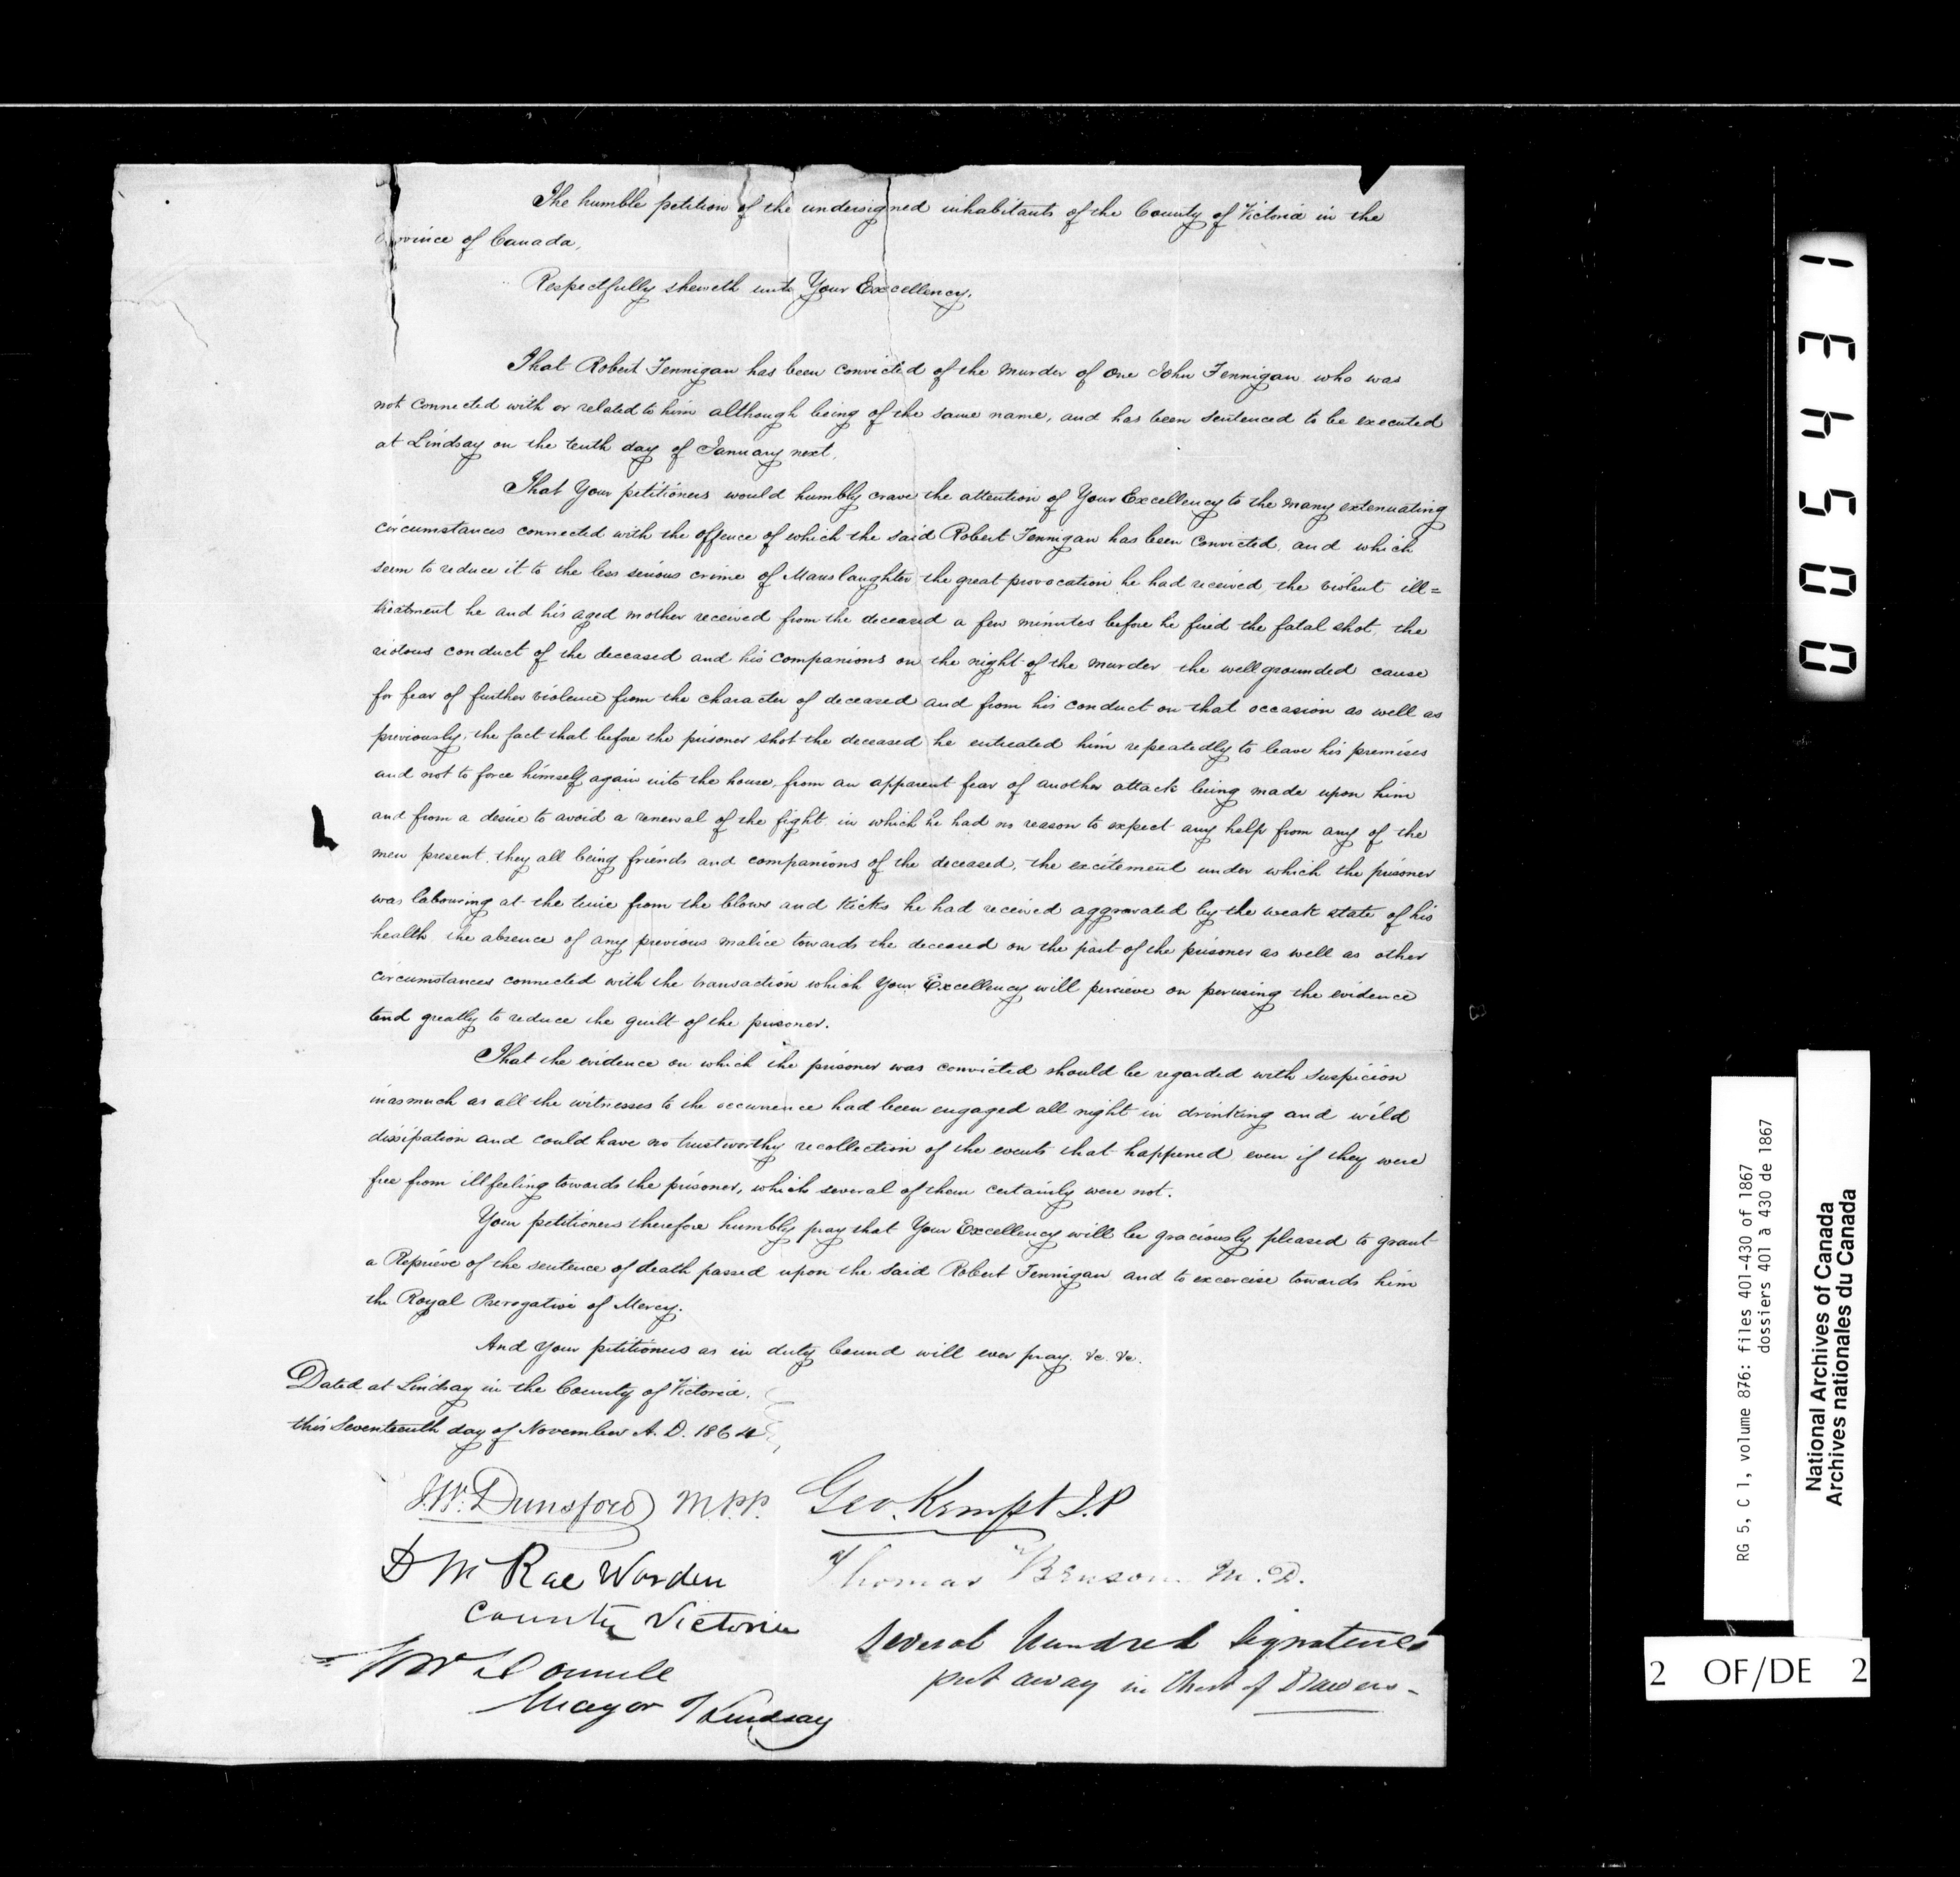 The humble petition of the undersigned inhabitants of the County of Victoria in the
Province of Canada,
Respectfully sheweth unto Your Excellency.
That Robert Fennigan has been convicted of the Murder of one John Fennigan who was
not connected with or related to him although being of the same name, and has been sentenced to be executed
at Lindsay on the tenth day of January next.
That Your petitioners would humbly crave the attention of Your Excellency to the many extenuating
circumstances connected with the offence of which the said Robert Fennigan has been convicted, and which
seem to reduce it to the less serious crime of Manslaughter, the great provocation he had received, the violent ill=
treatment he and his aged mother received from the deceased a few minutes before he fired the fatal shot, the
riotous conduct of the deceased and his companions on the night of the murder the well grounded cause
for fear of further violence from the character of deceased and from his conduct on that occasion as well as
previously, the fact that before the prisoner shot the deceased he entreated him repeatedly to leave his premises
and not to force himself again into the house, from an apparent fear of another attack being made upon him
and from a desire to avoid a renewal of the fight in which he had no reason to expect any help from any of the
men present, they all being friends and companions of the deceased, the excitement under which the prisoner
was labouring at the time from the blows and kicks he had received aggravated by the weak state of his
health the absence of any previous malice towards the deceased on the part of the prisoner as well as other
circumstances connected with the transaction which Your Excellency will percieve on perusing the evidence
tend greatly to reduce the guilt of the prisoner.
That the evidence on which the prisoner was convicted should be regarded with suspicion
inasmuch as all the witnesses to the occurrence had been engaged all night in drinking and wild
dissipation and could have no trustworthy recollection of the events that happened even if they were
free from ill feeling towards the prisoner, which several of them certainly were not.
Your petitioners therefore humbly pray that Your Excellency will be graciously pleased to grant
a Reprieve of the sentence of death passed upon the said Robert Fennigan and to excercise towards him
the Royal Prerogative of Mercy.
And Your petitioners as in duty bound will ever pray. &c. &c.
Dated at Lindsay in the County of Victoria.
this Seventeenth day of November A.D. 1864
J.W. Dunsford M.P.P. Geo. Kempt J.P
D McRae Warden Thomas Benson M.D.
County Victoria
Mayor Lindsay
Several hundred signatures
put away in Chest of Drawers -
005431
RG 5, C 1, volume 876: files 401-430 of 1867
dossiers 401 à 430 de 1867
National Archives of Canada
Archives nationales du Canada
2 OF/DE 2